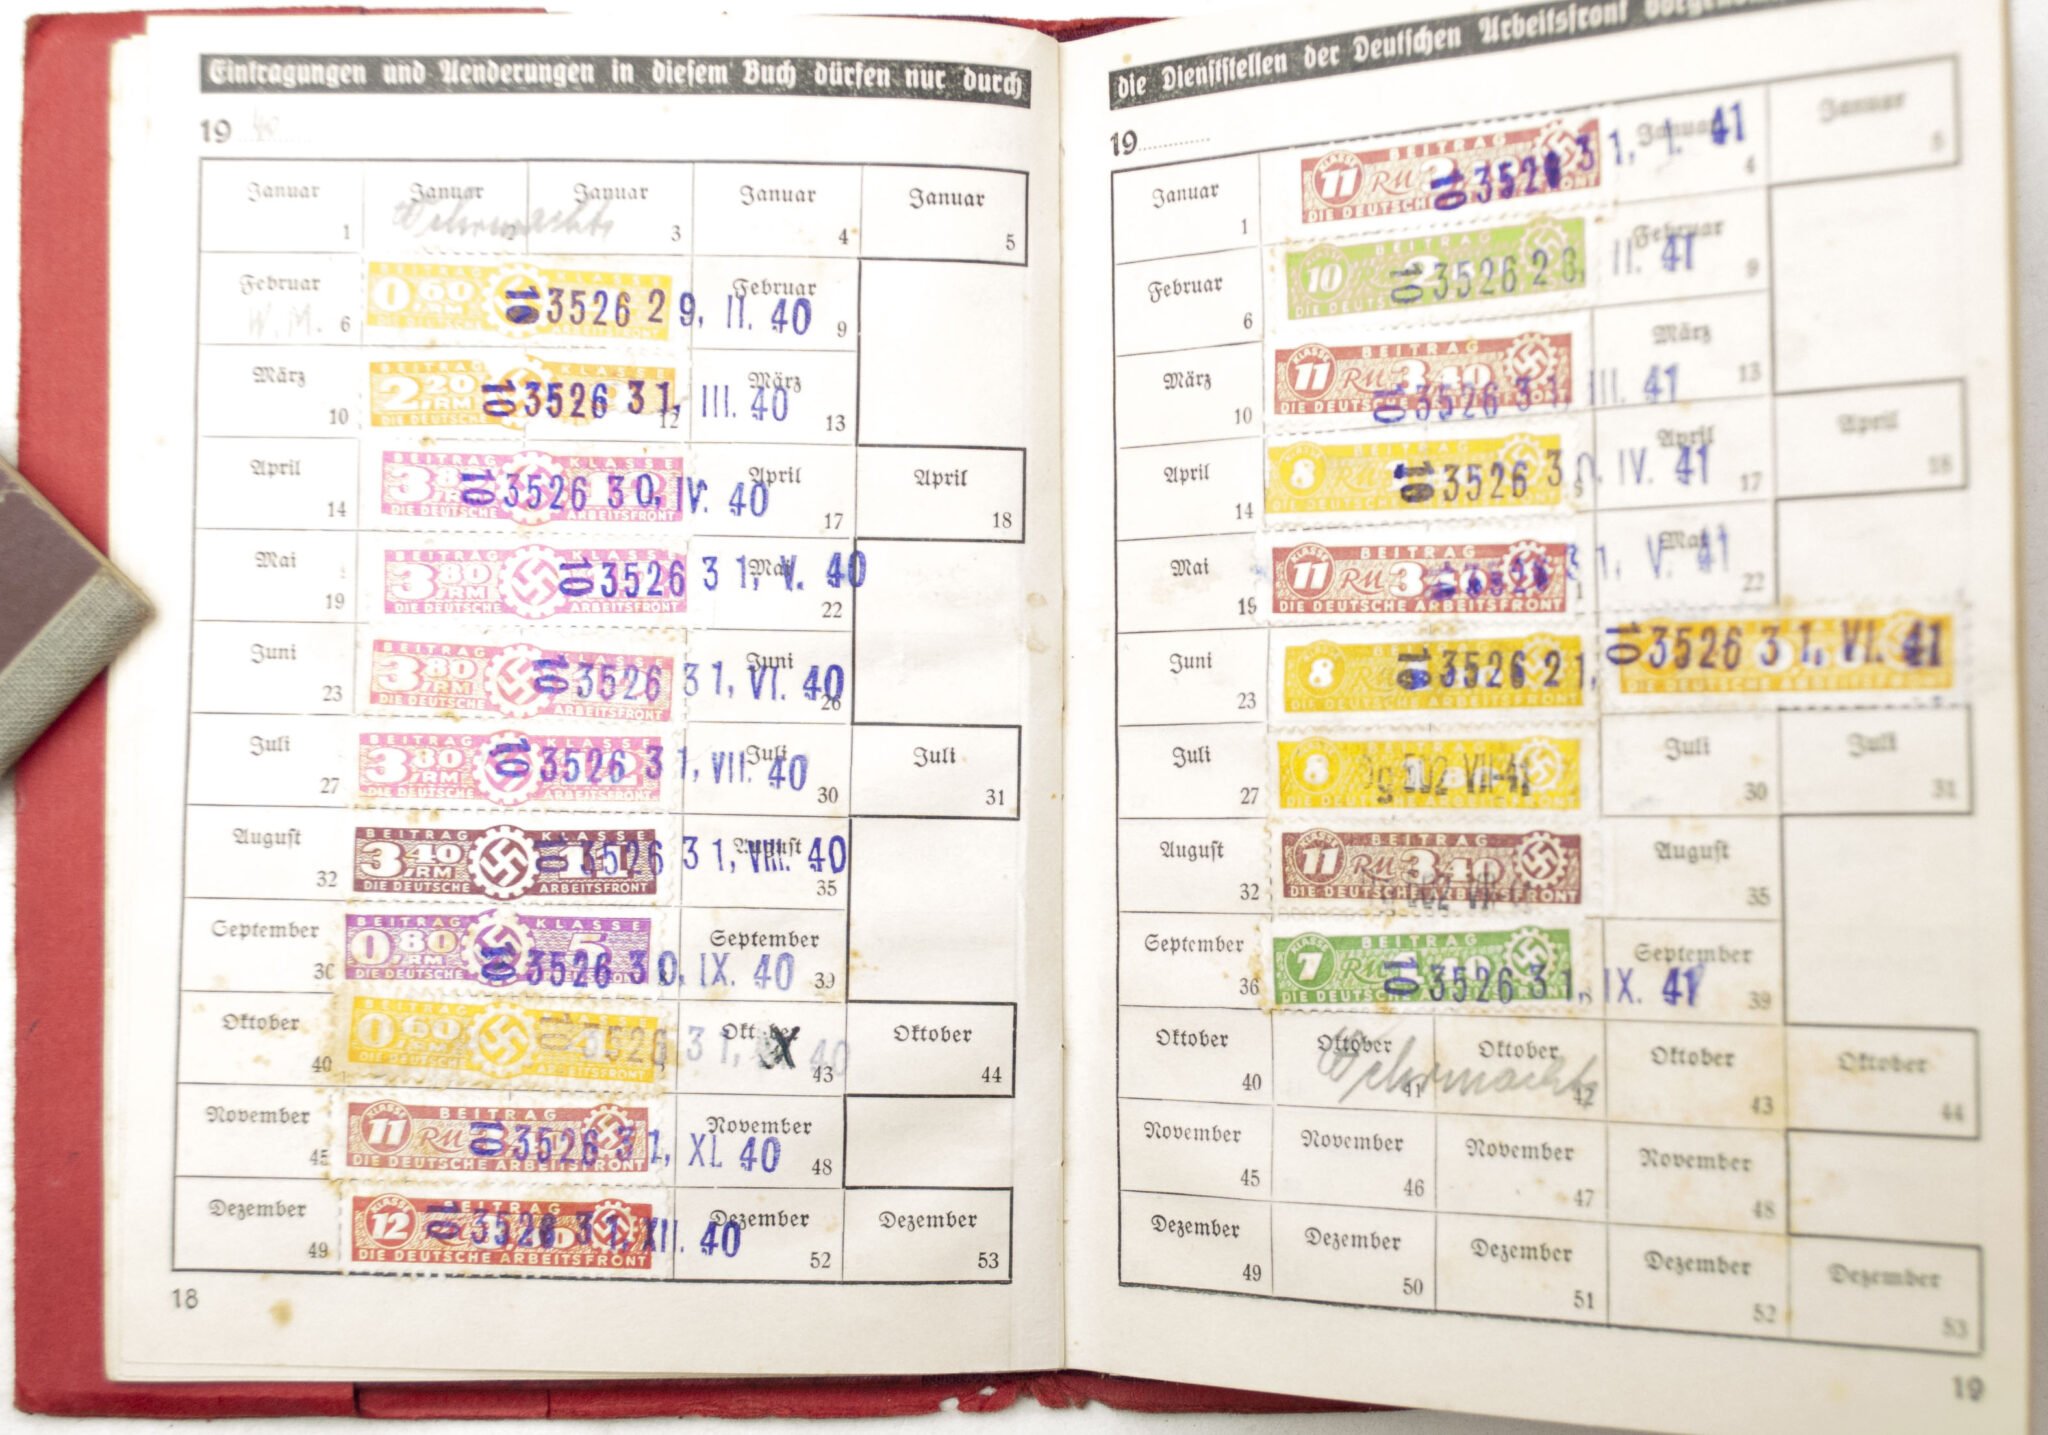 Eintragungen und Aenderungen in diesem Buch dürfen nur durch
19 40
Januar 1 Januar 2 Januar 3 Januar 4 Januar 5
Wehrmacht
Februar 6 Februar 9
W. M.
BEITRAG KLASSE
0,60 RM
DIE DEUTSCHE ARBEITSFRONT
10 3526 29. II. 40
März 10 12 März 13
BEITRAG KLASSE
2,20 RM
10 3526 31. III. 40
April 14 April 17 April 18
BEITRAG KLASSE
3,80 RM
DIE DEUTSCHE ARBEITSFRONT
10 3526 30. IV. 40
Mai 19 Mai 22
BEITRAG KLASSE
3,80 RM
DIE DEUTSCHE ARBEITSFRONT
10 3526 31. V. 40
Juni 23 Juni 26
BEITRAG KLASSE
3,80 RM
DIE DEUTSCHE ARBEITSFRONT
10 3526 31. VI. 40
Juli 27 Juli 30 Juli 31
BEITRAG KLASSE
3,80 RM
DIE DEUTSCHE ARBEITSFRONT
10 3526 31. VII. 40
August 32 August 35
BEITRAG KLASSE
3,40 RM 11
DIE DEUTSCHE ARBEITSFRONT
10 3526 31. VIII. 40
September 36 September 39
BEITRAG KLASSE
0,80 RM 5
DIE DEUTSCHE ARBEITSFRONT
10 3526 30. IX. 40
Oktober 40 Oktober 43 Oktober 44
BEITRAG KLASSE
0,60 RM
DIE DEUTSCHE ARBEITSFRONT
10 3526 31. X 40
November 45 November 48
KLASSE 11 BEITRAG
RM
DIE DEUTSCHE ARBEITSFRONT
10 3526 31. XI. 40
Dezember 49 Dezember 52 Dezember 53
KLASSE 12 BEITRAG
DIE DEUTSCHE ARBEITSFRONT
10 3526 31. XII. 40
18
die Dienststellen der Deutschen Arbeitsfront
19
Januar 1 Januar 4 Januar 5
KLASSE 11 BEITRAG
RM
10 3526 31. I. 41
Februar 6 Februar 9
10 BEITRAG
DIE DEUTSCHE ARBEITSFRONT
10 3526 28. II. 41
März 10 März 13
KLASSE 11 BEITRAG
RM 3,40
DIE DEUTSCHE ARBEITSFRONT
10 3526 31. III. 41
April 14 April 17 April 18
8 BEITRAG
DIE DEUTSCHE ARBEITSFRONT
10 3526 30. IV. 41
Mai 19 Mai 22
KLASSE 11 BEITRAG
RM 3,40
DIE DEUTSCHE ARBEITSFRONT
3526 31. V. 41
Juni 23
8 BEITRAG
DIE DEUTSCHE ARBEITSFRONT
10 3526 21. 10 3526 31. VI. 41
DIE DEUTSCHE ARBEITSFRONT
Juli 27 Juli 30 Juli 31
8 BEITRAG
DIE DEUTSCHE ARBEITSFRONT
VII-41
August 32 August 35
KLASSE 11 BEITRAG
RM 3,40
DIE DEUTSCHE ARBEITSFRONT
September 36 September 39
KLASSE 7 BEITRAG
RM
DIE DEUTSCHE ARBEITSFRONT
10 3526 31. IX. 41
Oktober 40 Oktober 41 Oktober 42 Oktober 43 Oktober 44
Wehrmacht
November 45 November 46 November 47 November 48
Dezember 49 Dezember 50 Dezember 51 Dezember 52 Dezember 53
19